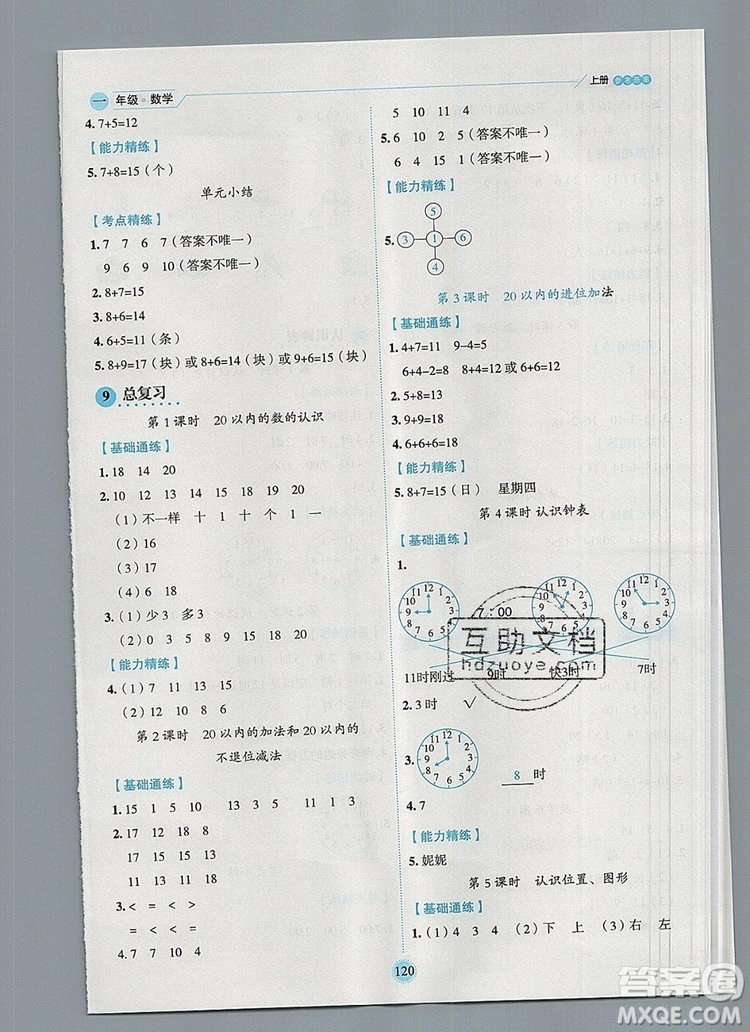 一 年级·数学
上册 参考答案
4.7+5=12
【能力精练】
5.7+8=15（个）
单元小结
【考点精练】
1.7 7 6 7（答案不唯一）
9 6 9 10（答案不唯一）
2.8+7=15
3.8+7=15
4.6+5=11（条）
5.8+9=17（块）或 8+6=14（块）或 9+6=15（块）
9 总复习
第1课时 20以内的数的认识
【基础通练】
1.18 14 20
2.10 12 13 14 15 16 17 18 20
（1）不一样 十 1 十 个 1 一
（2）16
（3）17
（4）6 18
3.（1）少3 多3
（2）0 3 5 8 9 10 15 19
【能力精练】
4.（1）7 11 13 15
（2）12 10 8 6
第2课时 20以内的加法和20以内的
不退位减法
【基础通练】
1.15 1 5 10 13 3 5 11 1 3
2.17 12 18 8
17 11 13 18
15 15 18 18
3.< = < >
< = < >
4.7 7 7 7
5 10 11 4
5.6 10 2（答案不唯一）
6 4 15 1（答案不唯一）
【能力精练】
5
5. 3 1 6
4
第3课时 20以内的进位加法
【基础通练】
1.4+7=11 9-4=5
6+4-2=8 8+4=12 6+6=12
2.5+8=13
3.9+9=18
4.6+6+6=18
【能力精练】
5.8+7=15（日） 星期四
第4课时 认识钟表
【基础通练】
1.
11 12 1 10 2 9 3 8 4 7 6 5
7:00
11 12 1 10 2 9 3 8 4 7 6 5
11 12 1 10 2 9 3 8 4 7 6 5
互助文档
hdzuoye.com
11时刚过 9时 快3时 7时
2.3时 √
3.
11 12 1 10 2 9 3 8 4 7 6 5
8 时
4.7
【能力精练】
5.妮妮
第5课时 认识位置、图形
【基础通练】
1.（1）4 3 4 （2）下 上 （3）右 左
120
答案圈
MXQE.COM